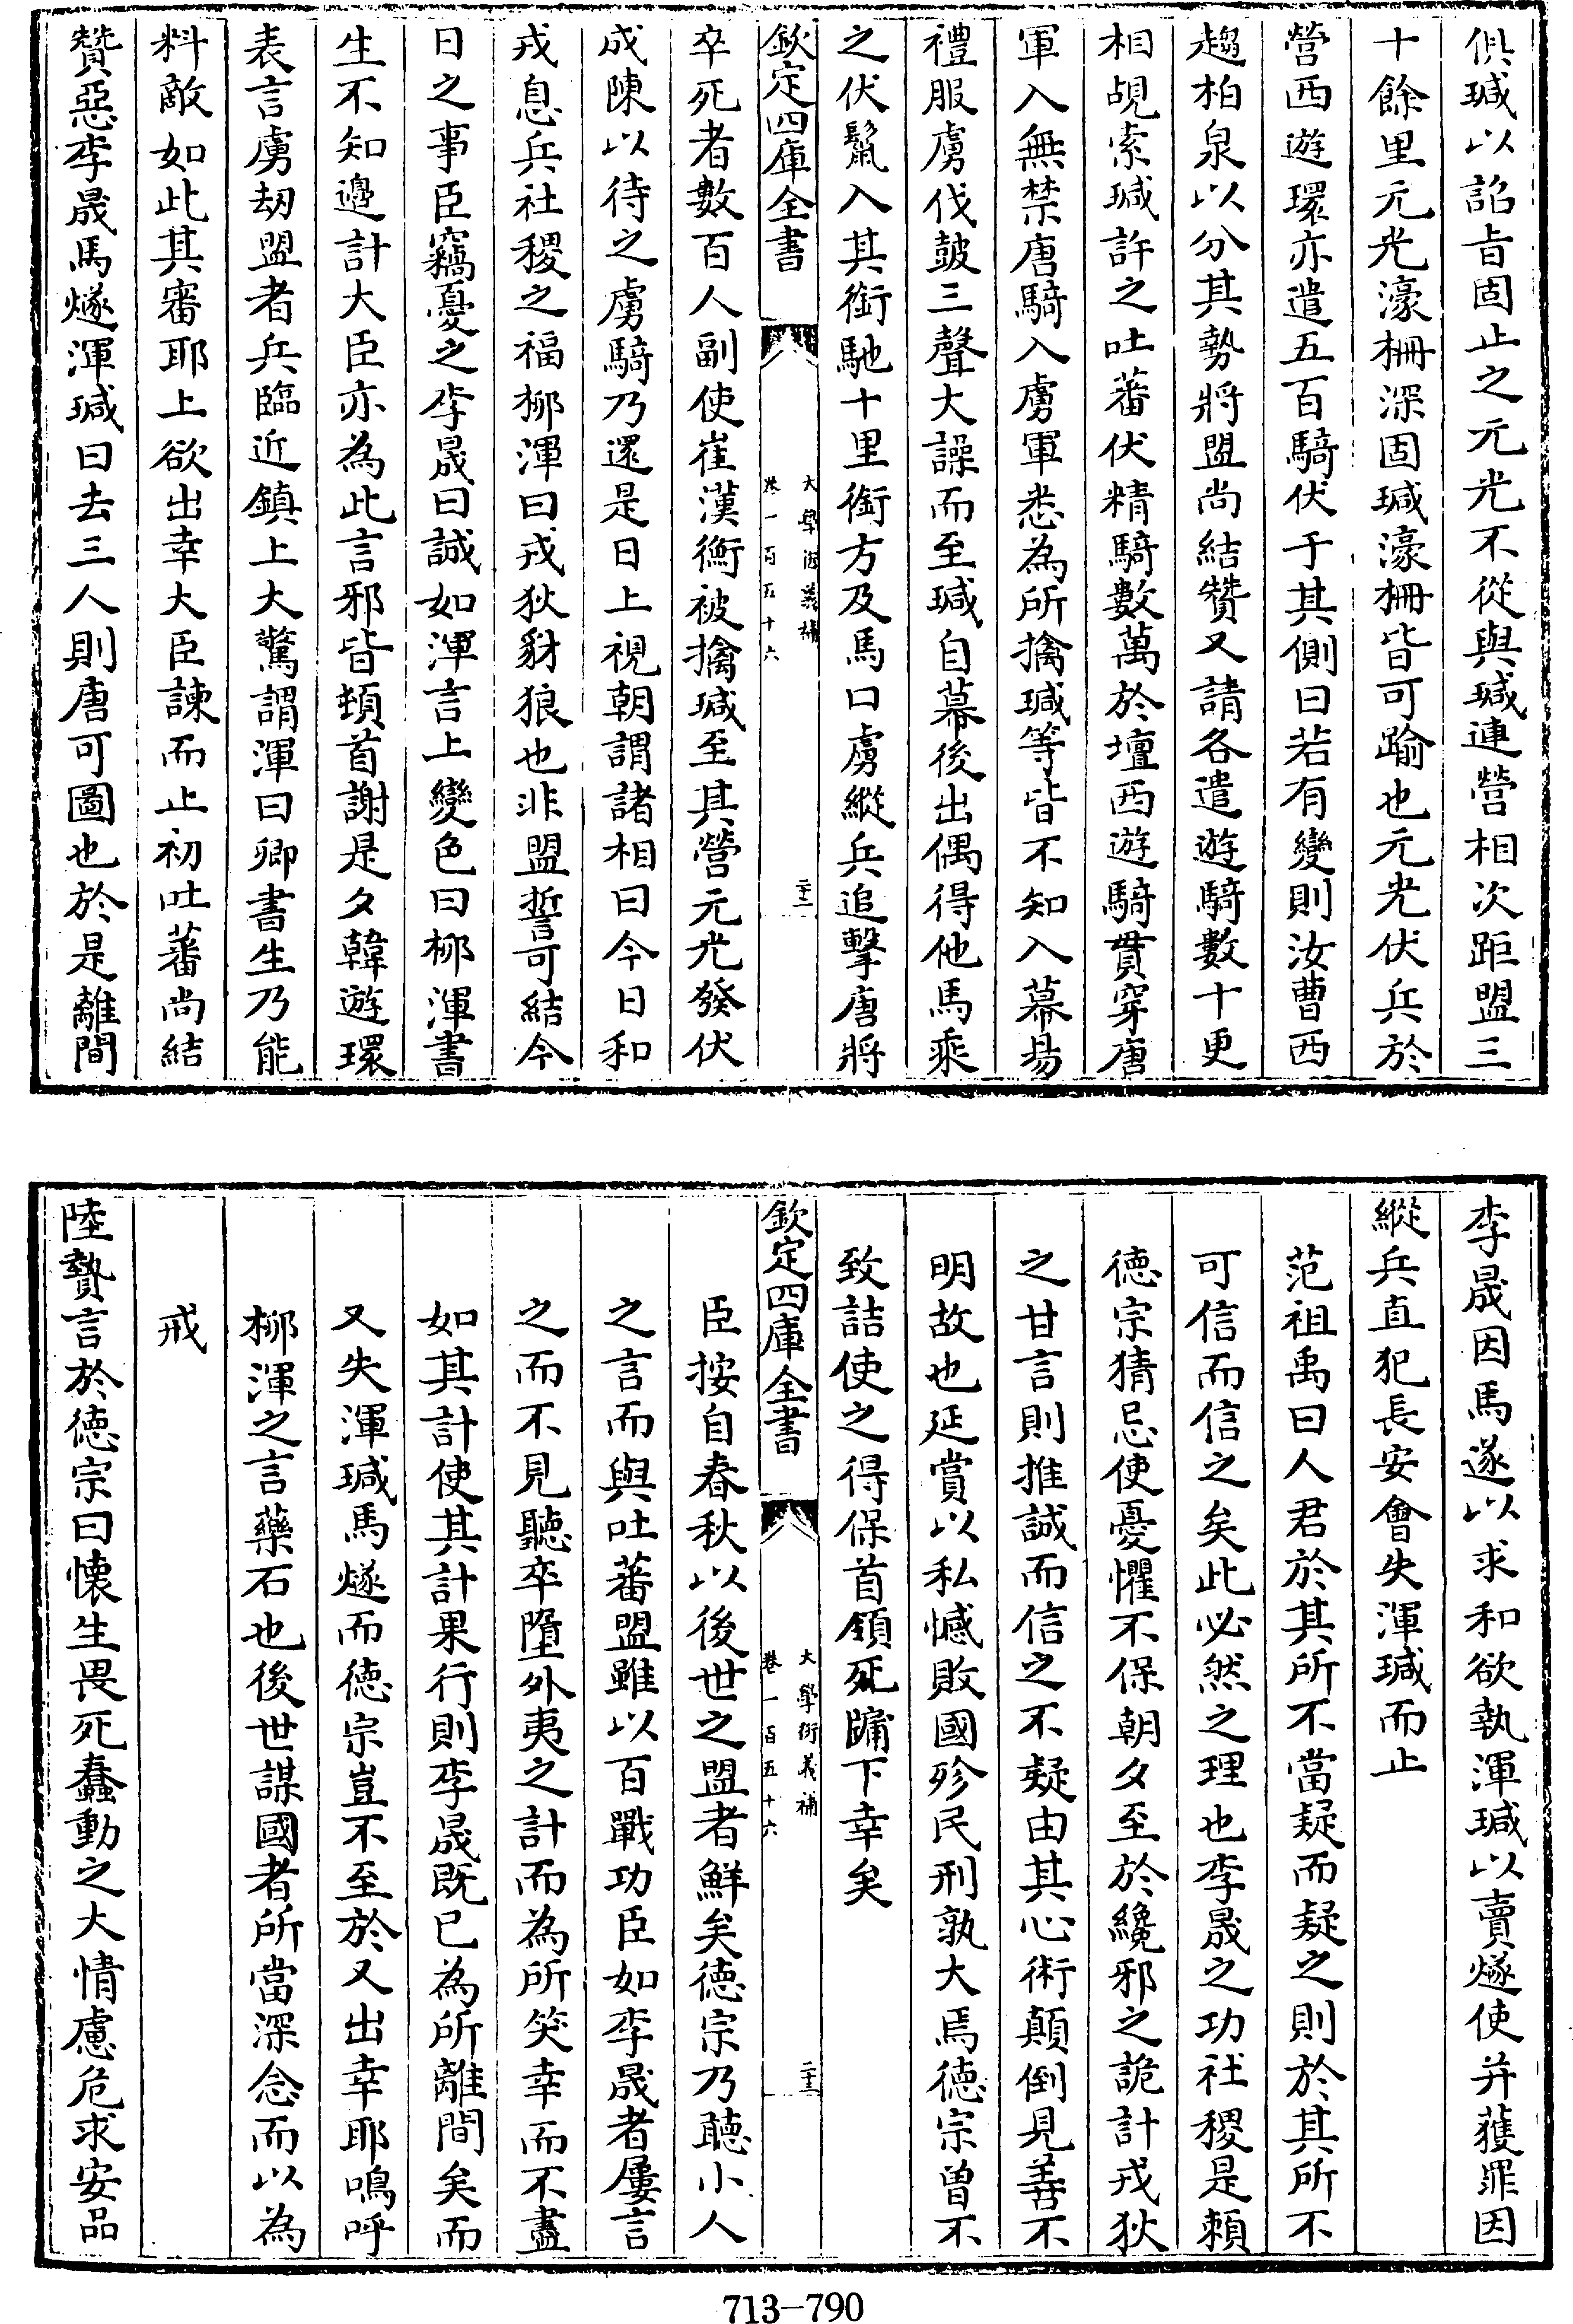 俱瑊以詔㫖固止之元光不從與瑊連營相次距盟三
十餘里元光濠栅深固瑊濠栅皆可踰也元光伏兵於
營西遊環亦遣五百騎伏于其側曰若有變則汝曹西
趨柏泉以分其勢將盟尚結贊又請各遣遊騎數十更
相覘索瑊許之吐蕃伏精騎數萬於壇西遊騎貫穿唐
軍入無禁唐騎入虜軍悉為所擒瑊等皆不知入幕易
禮服虜伐鼓三聲大譟而至瑊自幕後出偶得他馬乘
之伏鬛入其銜馳十里銜方及馬口虜縱兵追擊唐將
欽定四庫全書
大學衍義補
卷一百五十六
二十二
卒死者數百人副使崔漢衡被擒瑊至其營元光發伏
成陳以待之虜騎乃還是日上視朝謂諸相曰今日和
戎息兵社稷之福栁渾曰戎狄豺狼也非盟誓可結今
日之事臣竊憂之李晟曰誠如渾言上變色曰栁渾書
生不知邊計大臣亦為此言邪皆頓首謝是夕韓遊環
表言虜刼盟者兵臨近鎮上大驚謂渾曰卿書生乃能
料敵如此其審耶上欲出幸大臣諫而止初吐蕃尚結
贊惡李晟馬燧渾瑊曰去三人則唐可圖也於是離間
李晟因馬遂以求和欲執渾瑊以賣燧使并獲罪因
縱兵直犯長安會失渾瑊而止
范祖禹曰人君於其所不當疑而疑之則於其所不
可信而信之矣此必然之理也李晟之功社稷是頼
德宗猜忌使憂懼不保朝夕至於纔邪之詭計戎狄
之甘言則推誠而信之不疑由其心術顛倒見善不
明故也延賞以私憾敗國殄民刑孰大焉德宗曾不
致詰使之得保首領死牖下幸矣
欽定四庫全書
大學衍義補
卷一百五十六
二十三
臣按自春秋以後世之盟者鮮矣德宗乃聽小人
之言而與吐蕃盟雖以百戰功臣如李晟者屢言
之而不見聽卒墮外夷之計而為所笑幸而不盡
如其計使其計果行則李晟既已為所離間矣而
又失渾瑊馬燧而德宗豈不至於又出幸耶嗚呼
栁渾之言藥石也後世謀國者所當深念而以為
戒
陸贄言於德宗曰懐生畏死蠢動之大情慮危求安品
713-790